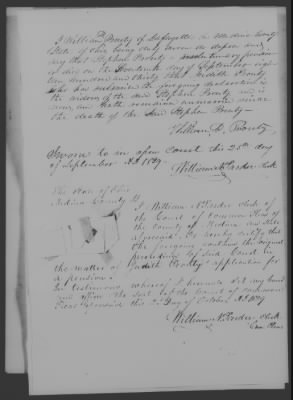 I William Prouty of Lafayette in Medina County
State of Ohio being duly sworn do depose and
say that Stephen Prouty a revolutionary pensioner
did die on the Seventeenth day of September eigh-
teen hundred and thirty that Judith Prouty
who has subscribed the foregoing declaration is
the widow of the said Stephen Prouty and is
now and hath remained unmarried since
the death of the said Stephen Prouty
William Prouty
Sworn to in open Court this 25th day
of September AD 1839
William Clerk
The State of Ohio
Medina County
I William Clerk of
the Court of Common Pleas of
the County of Medina and State
aforesaid do hereby certify that
the foregoing contains the original
proceedings of said Court in
the matter of Judith Prouty application for
a pension
In testimony whereof I hereunto set my hand
and affix the seal of the Court of Common
Pleas aforesaid this day of October AD 1839
William Clerk
Com Pleas